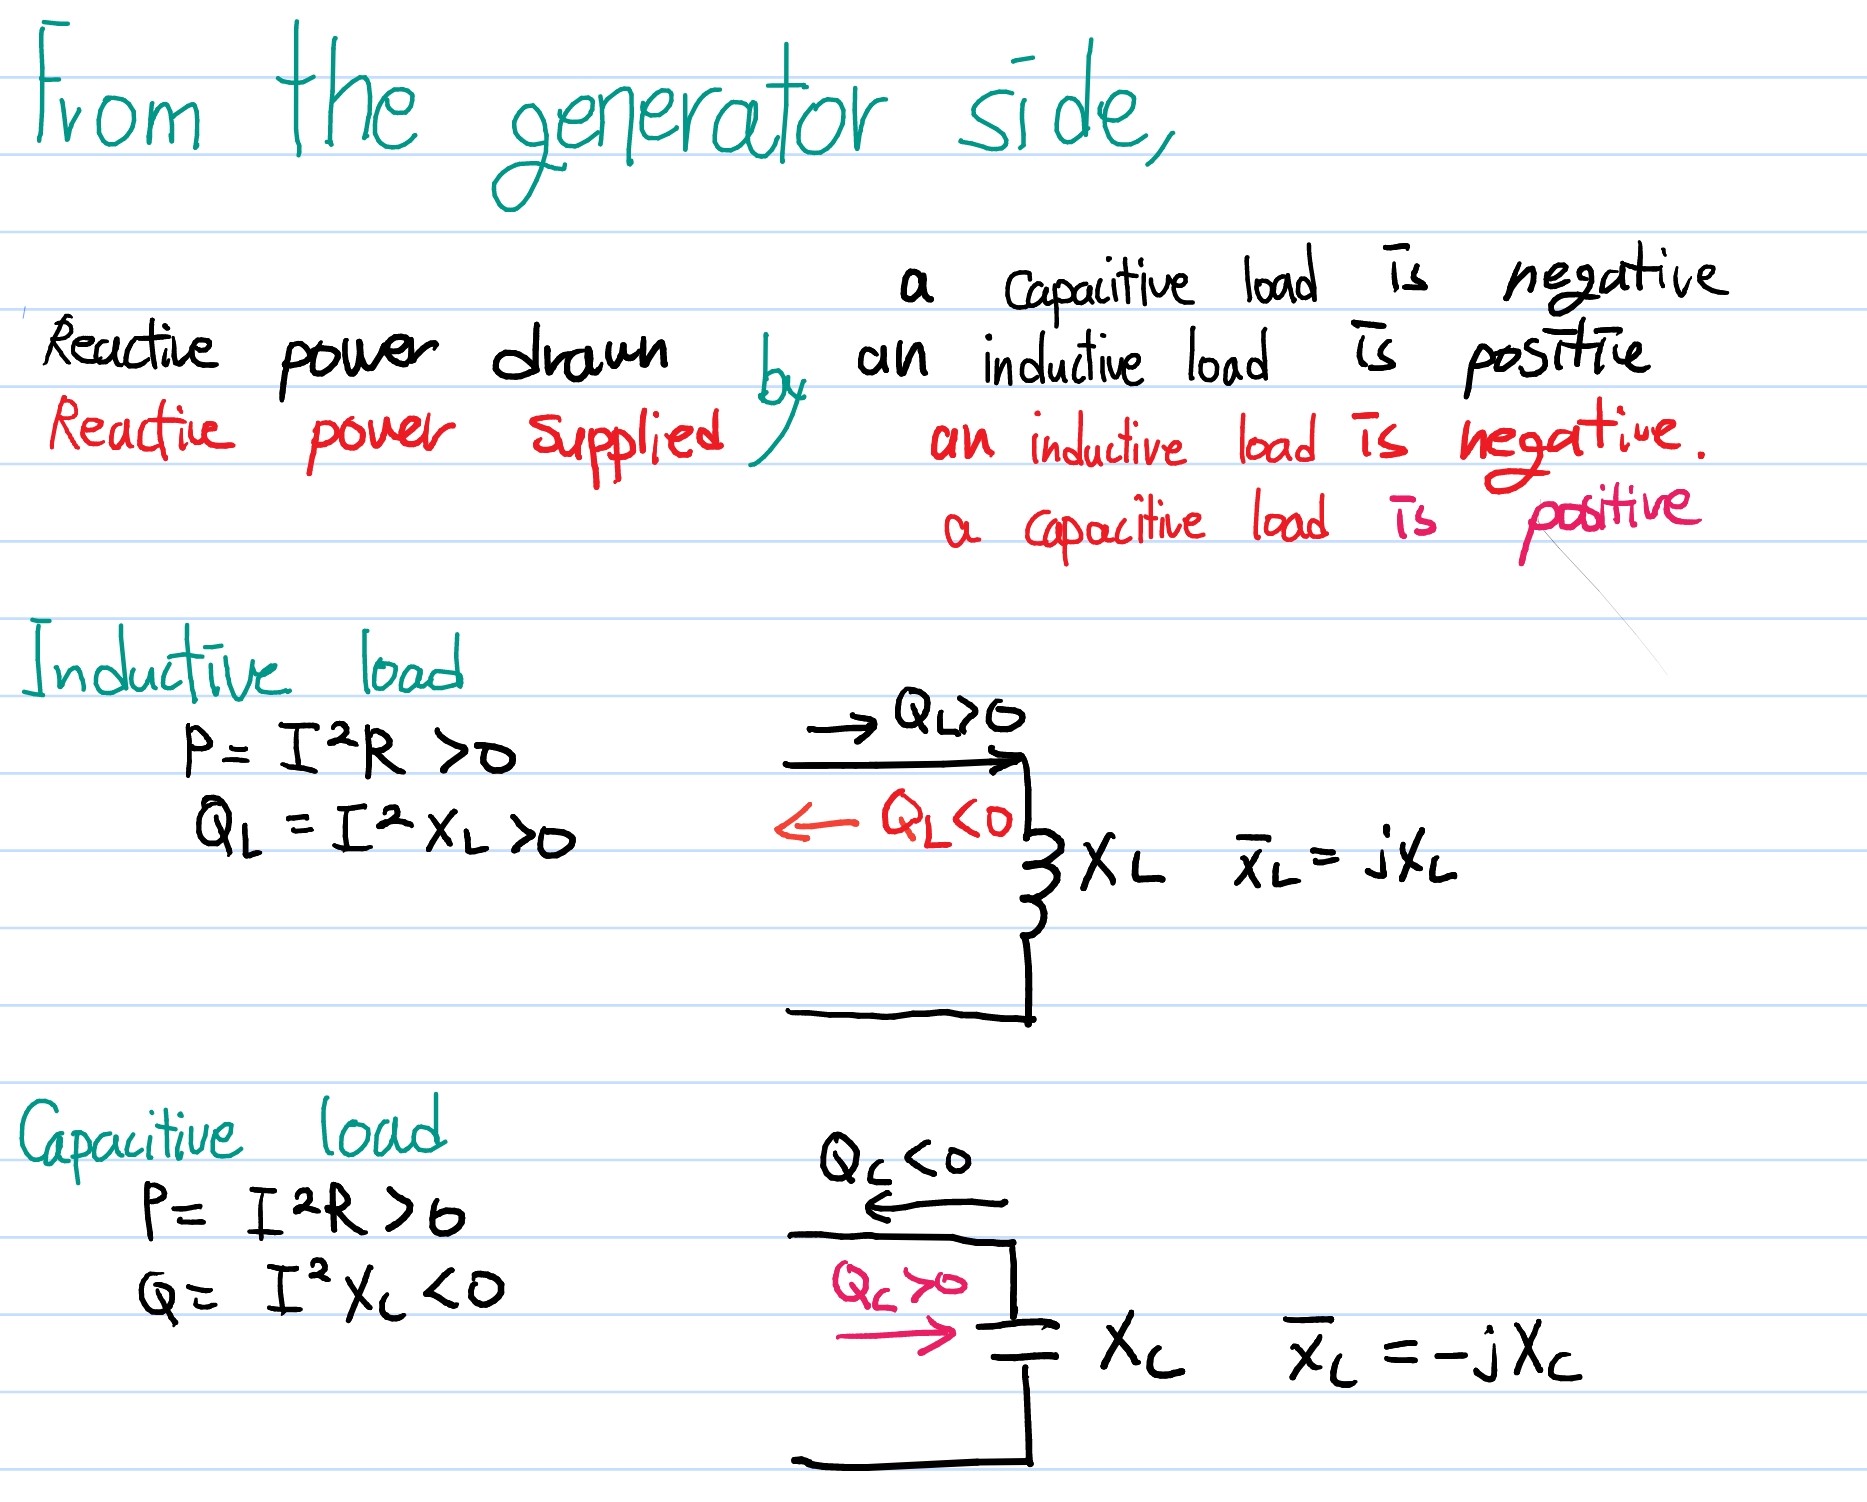 From the generator side,
a capacitive load is negative
Reactive power drawn by an inductive load is positive
Reactive power supplied an inductive load is negative.
a capacitive load is positive
Inductive load
P = I²R > 0
Q_L = I² X_L > 0
→ Q_L > 0
← Q_L < 0
X_L x̄_L = jX_L
Capacitive load
P = I²R > 0
Q = I² X_C < 0
Q_C < 0
←
Q_C > 0
→
X_C x̄_L = -jX_C